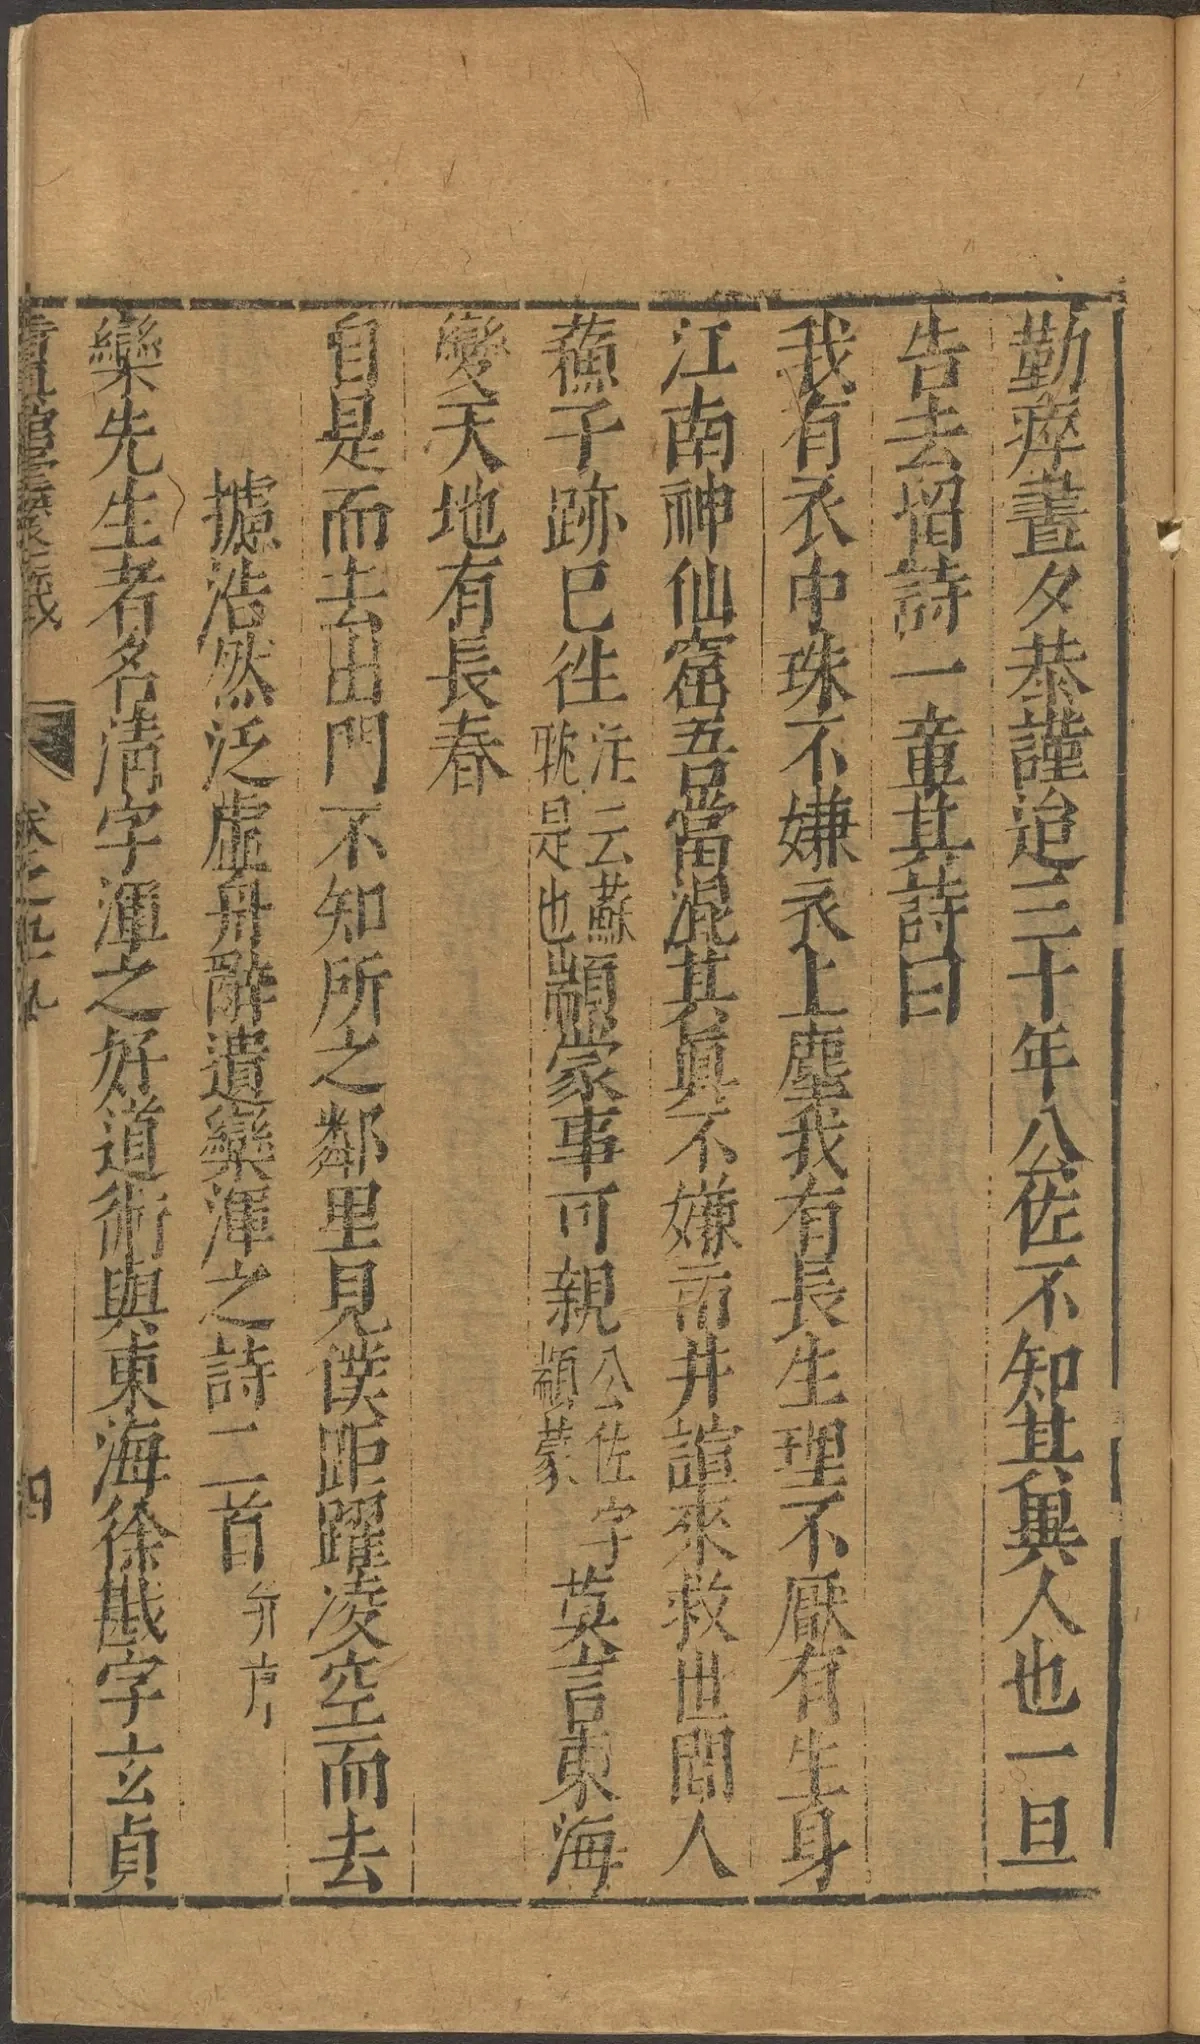 勤瘁晝夕恭謹迨三十年公佐不知其異人也一旦
告去留詩一章其詩曰
我有衣中珠不嫌衣上塵我有長生理不厭有生身
江南神仙窟吾當混其眞不嫌市井諠來救世間人
蘓子跡已往
注云蘇
躭是也
顓蒙事可親
公佐字
顓蒙
莫言東海
變天地有長春
自是而去出門不知所之鄰里見僕距躍凌空而去
攄浩然泛虛舟辭遺欒渾之詩二首
欒先生者名清字渾之好道術與東海徐戡字玄貞
卷之九十九
四